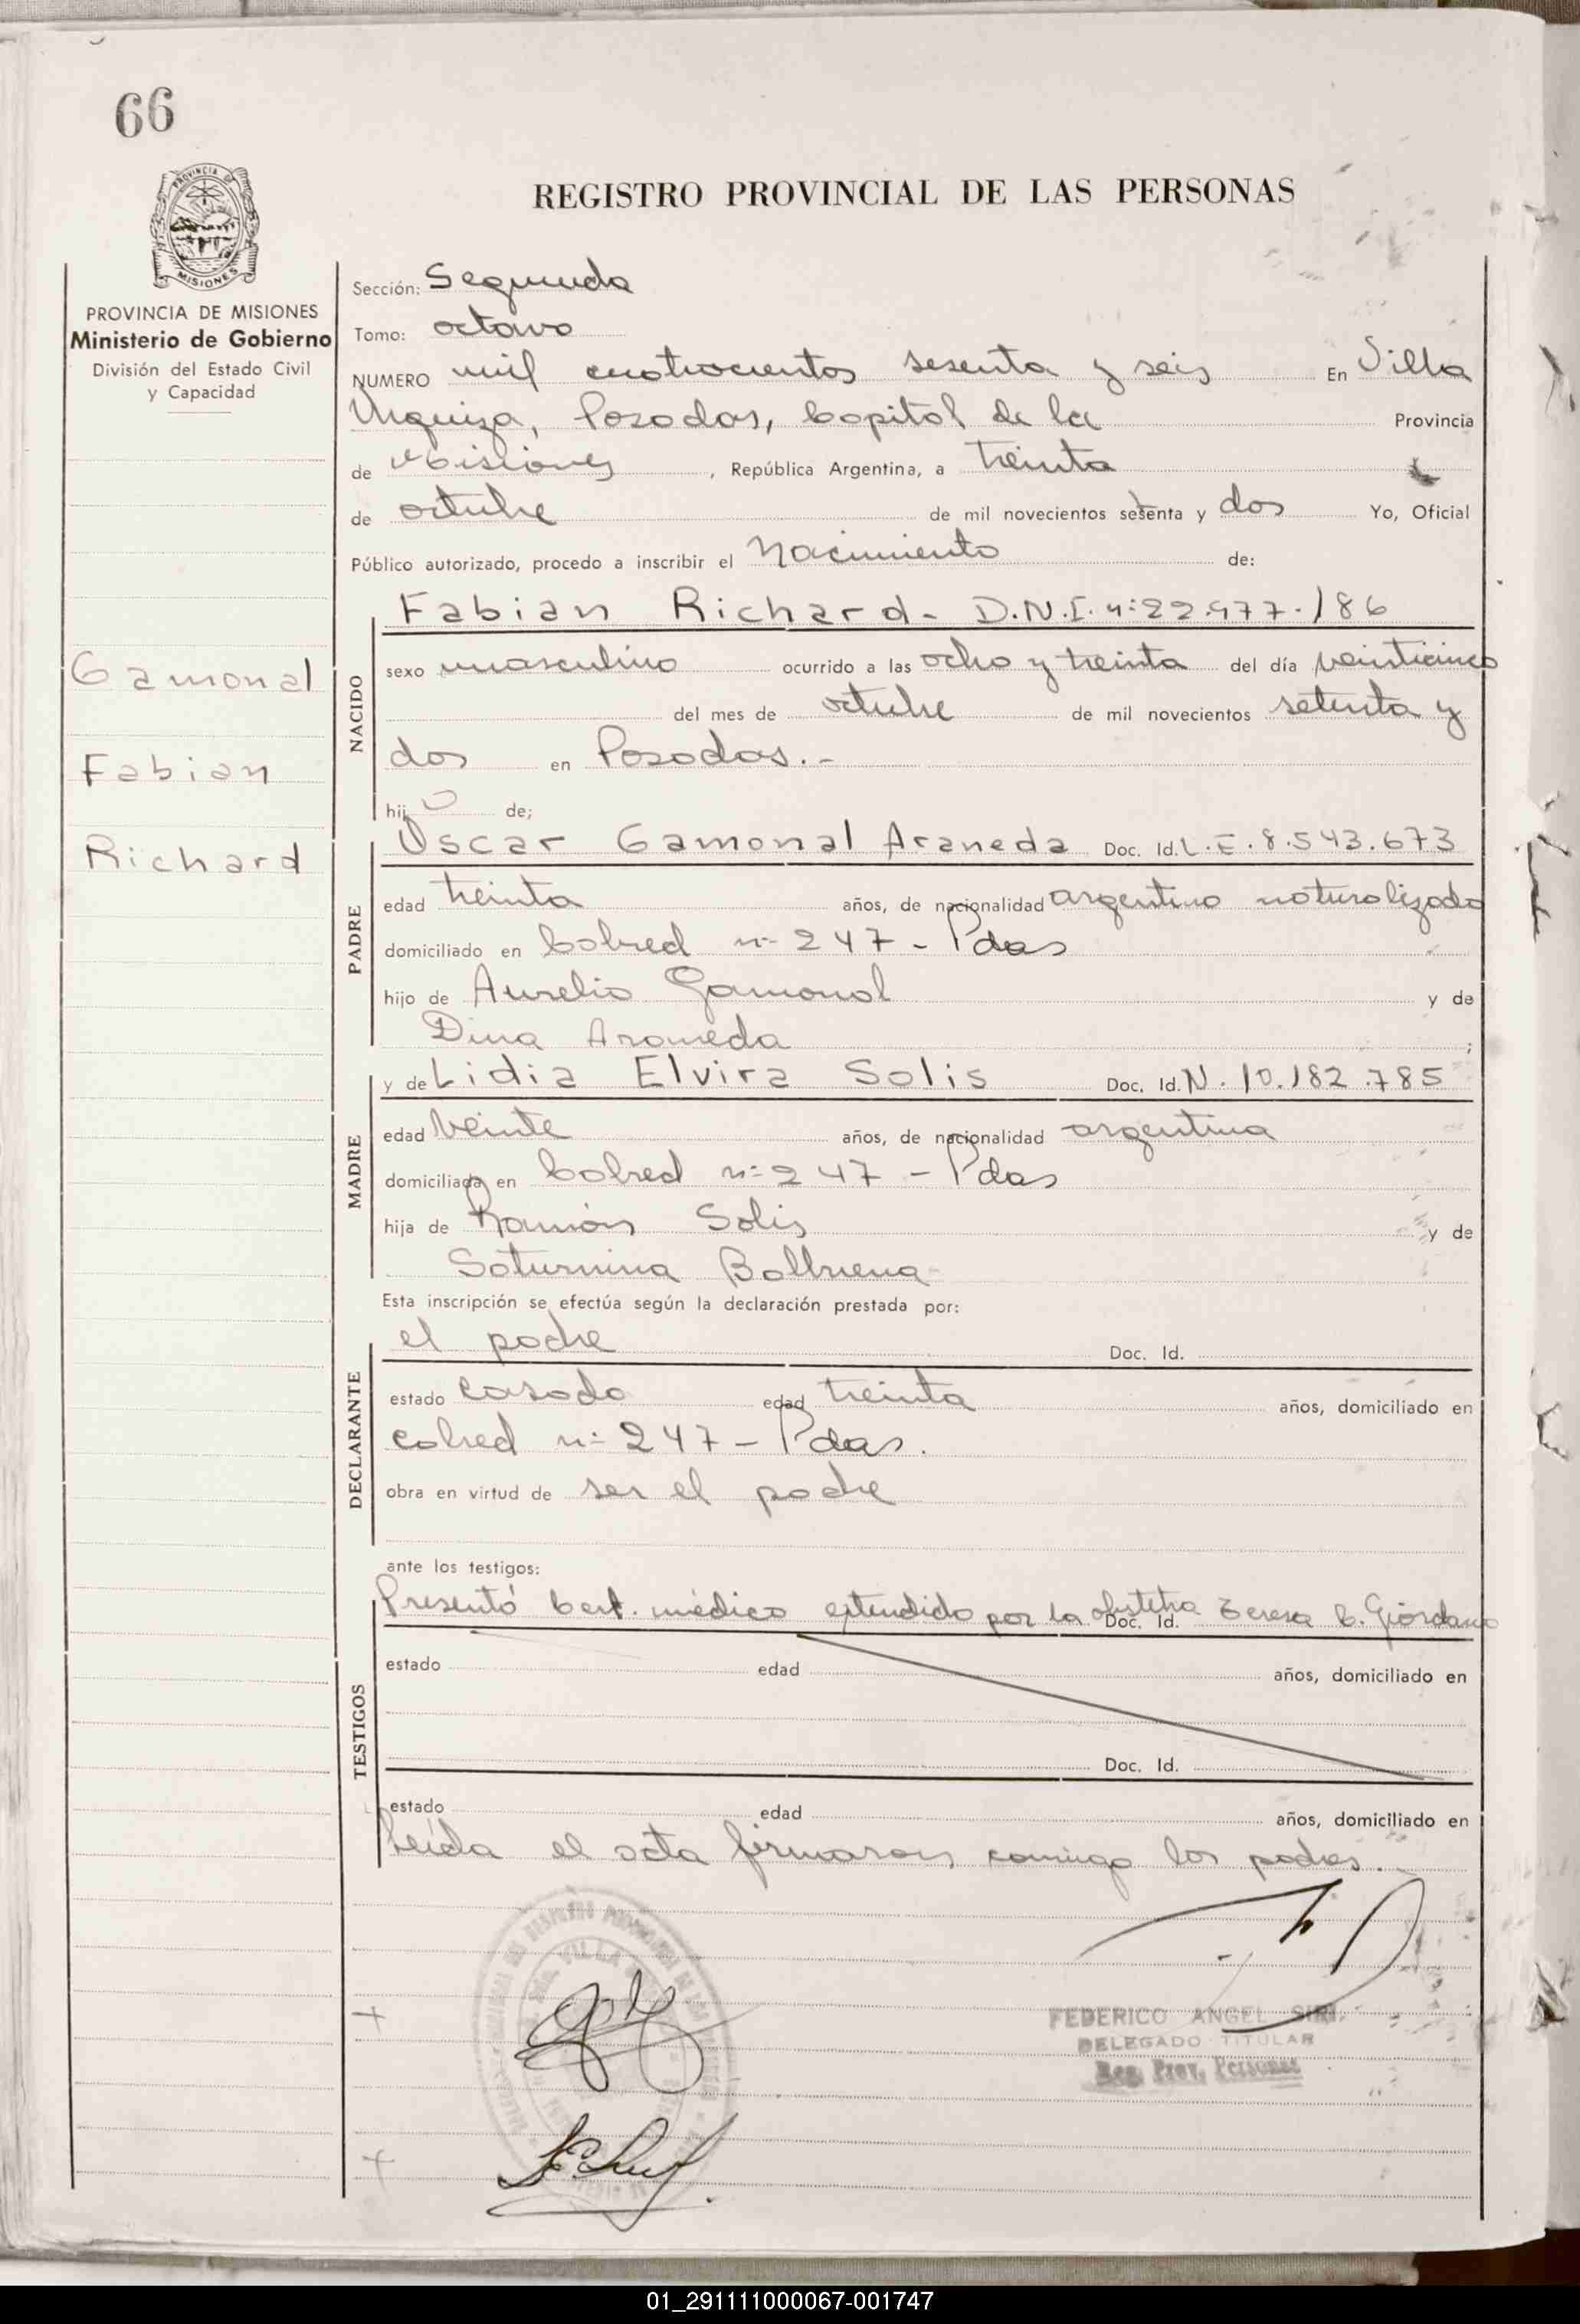 66
PROVINCIA DE MISIONES
REGISTRO PROVINCIAL DE LAS PERSONAS
PROVINCIA DE MISIONES
Ministerio de Gobierno
División del Estado Civil
y Capacidad
Gamonal
Fabian
Richard
Sección: Segunda
Tomo: octavo
NUMERO mil cuatrocientos sesenta y seis En Villa
Urquiza, Posadas, Capital de la Provincia
de Misiones, República Argentina, a treinta
de octubre de mil novecientos setenta y dos Yo, Oficial
Público autorizado, procedo a inscribir el Nacimiento de:
NACIDO
Fabian Richard - D.N.I. n: 22.477.186
sexo masculino ocurrido a las ocho y treinta del día veinticinco
del mes de octubre de mil novecientos setenta y
dos en Posadas.-
hijo de;
PADRE
Oscar Gamonal Araneda Doc. Id. L.E. 8.543.673
edad treinta años, de nacionalidad argentino naturalizado
domiciliado en Colred n= 247 - Pdas
hijo de Aurelio Gamonal y de
Dina Araneda;
MADRE
y de Lidia Elvira Solis Doc. Id. N. 10.182.785
edad veinte años, de nacionalidad argentina
domiciliada en Colred n= 247 - Pdas
hija de Ramón Solis y de
Saturnina Balbuena
Esta inscripción se efectúa según la declaración prestada por:
DECLARANTE
el padre Doc. Id.
estado casado edad treinta años, domiciliado en
colred n= 247 - Pdas.
obra en virtud de ser el padre
ante los testigos:
TESTIGOS
Presentó Cert. médico extendido por la obstetra Doc. Id. Teresa C. Giordano
estado edad años, domiciliado en
Doc. Id.
estado edad años, domiciliado en
Leída el acta firmaron conmigo los padres.-
FEDERICO ANGEL SIRI
DELEGADO TITULAR
Reg. Prov. Personas
01_291111000067-001747